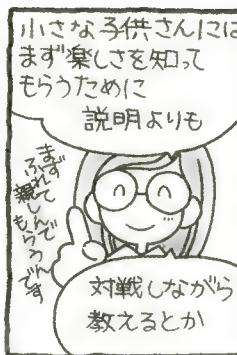 小さな子供さんには
まず楽しさを知って
もらうために
説明よりも
まず
ふれて
親しんで
もらうんです
対戦しながら
教えるとか